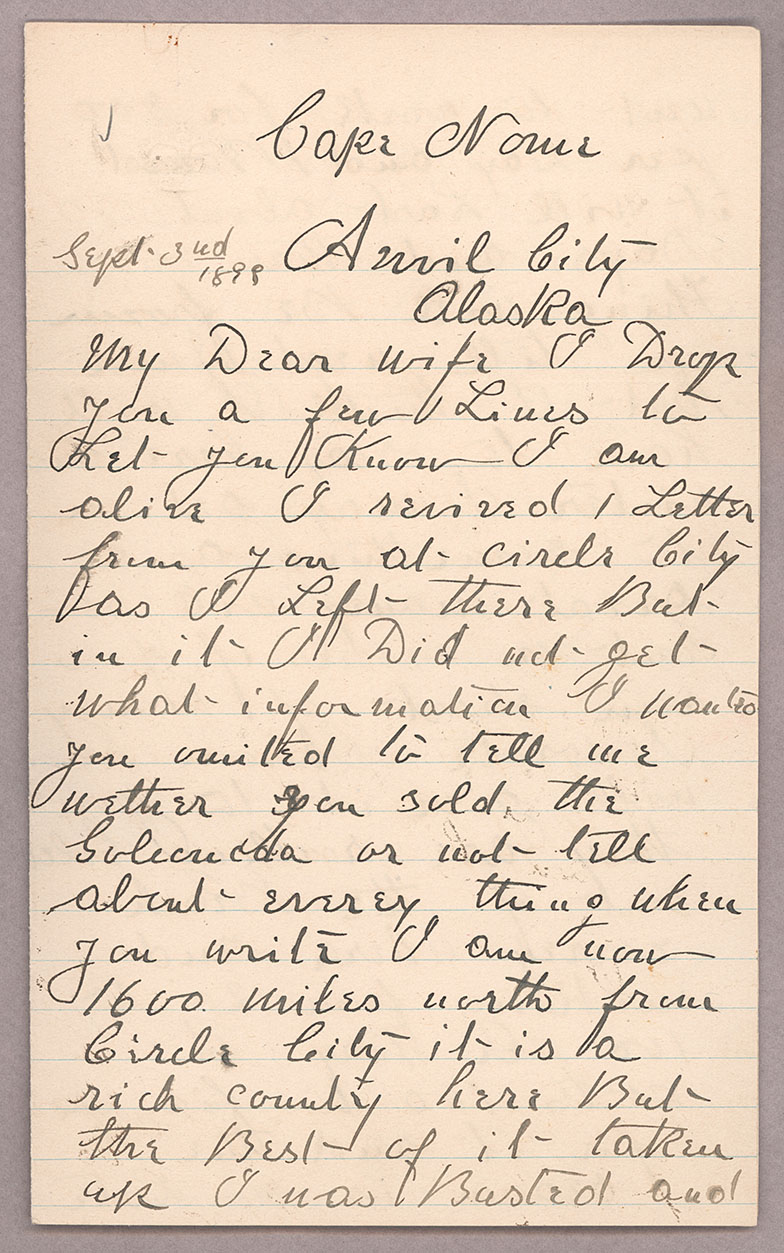 Cape Nome
Sept. 3rd 1899 Anvil City
Alaska
My Dear wife I Drop
you a few Lines to
Let you Know I am
alive I revived 1 Letter
from you at Circle City
as I Left there But
in it I Did not get
what information I wanted
you omited to tell me
wether you sold the
Golconda or not tell
about everey thing when
you write I am now
1600 miles north from
Circle City it is a
rich county here But
the Best of it taken
up I was Busted and